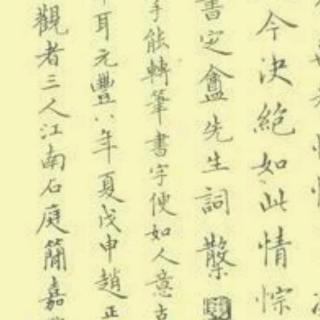 今決絕如此情悰
書定盦先生詞
手能轉筆書字便如人意古
耳元豐八年夏戊申趙正
觀者三人江南石庭簡嘉